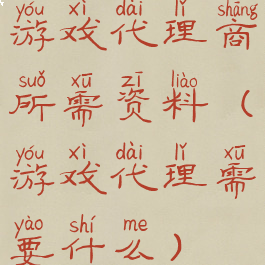 yóu xì dài lǐ shāng
游戏代理商
suǒ xū zī liào
所需资料（
yóu xì dài lǐ xū
游戏代理需
yào shí me
要什么）